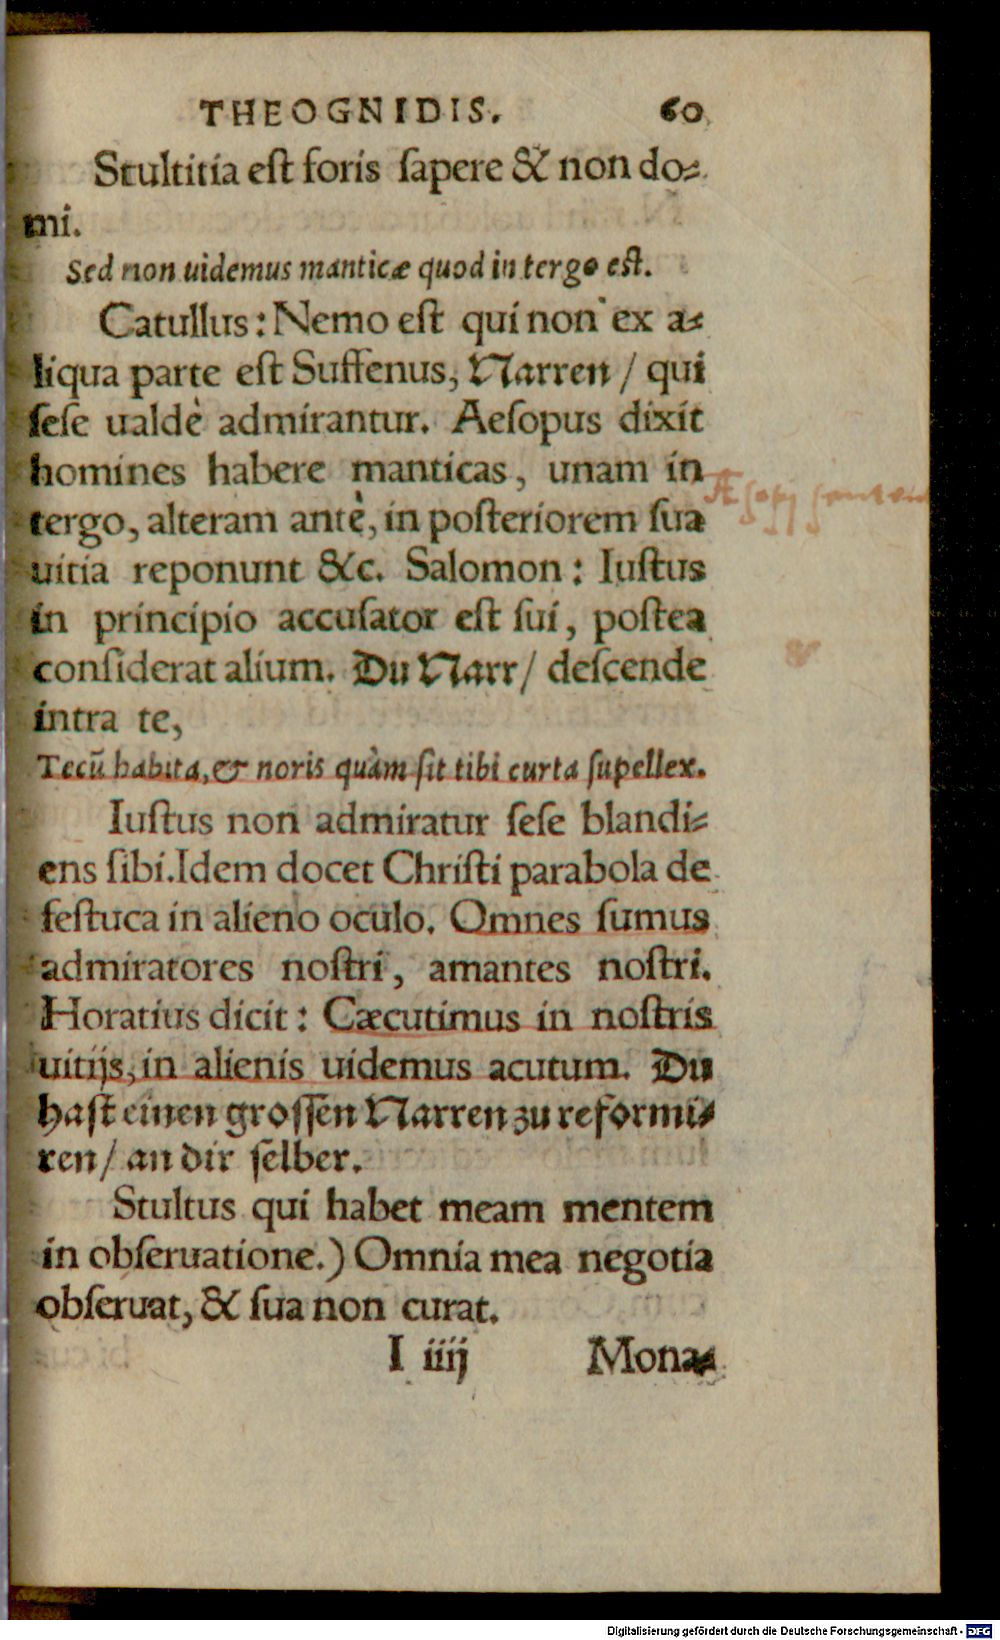 THEOGNIDIS. 60
Stultitia eſt foris ſapere & non do⸗
mi.
Sed non uidemus manticæ quod in tergo eſt.
Catullus: Nemo eſt qui non ex a⸗
liqua parte eſt Suffenus, Narren / qui
ſeſe ualdè admirantur. Aeſopus dixit
homines habere manticas, unam in
tergo, alteram antè, in poſteriorem ſua
uitia reponunt &c. Salomon: Iuſtus
in principio accuſator eſt ſui, poſtea
conſiderat alium. Du Narr / deſcende
intra te,
Tecū habita, & noris quàm ſit tibi curta ſupellex.
Iuſtus non admiratur ſeſe blandi⸗
ens ſibi. Idem docet Chriſti parabola de
feſtuca in alieno oculo. Omnes ſumus
admiratores noſtri, amantes noſtri.
Horatius dicit: Cæcutimus in noſtris
uitijs, in alienis uidemus acutum. Du
haſt einen groſſen Narren zu reformi⸗
ren / an dir ſelber.
Stultus qui habet meam mentem
in obſeruatione.) Omnia mea negotia
obſeruat, & ſua non curat.
I iiij Mona⸗
Digitalisierung gefördert durch die Deutsche Forschungsgemeinschaft - DFG